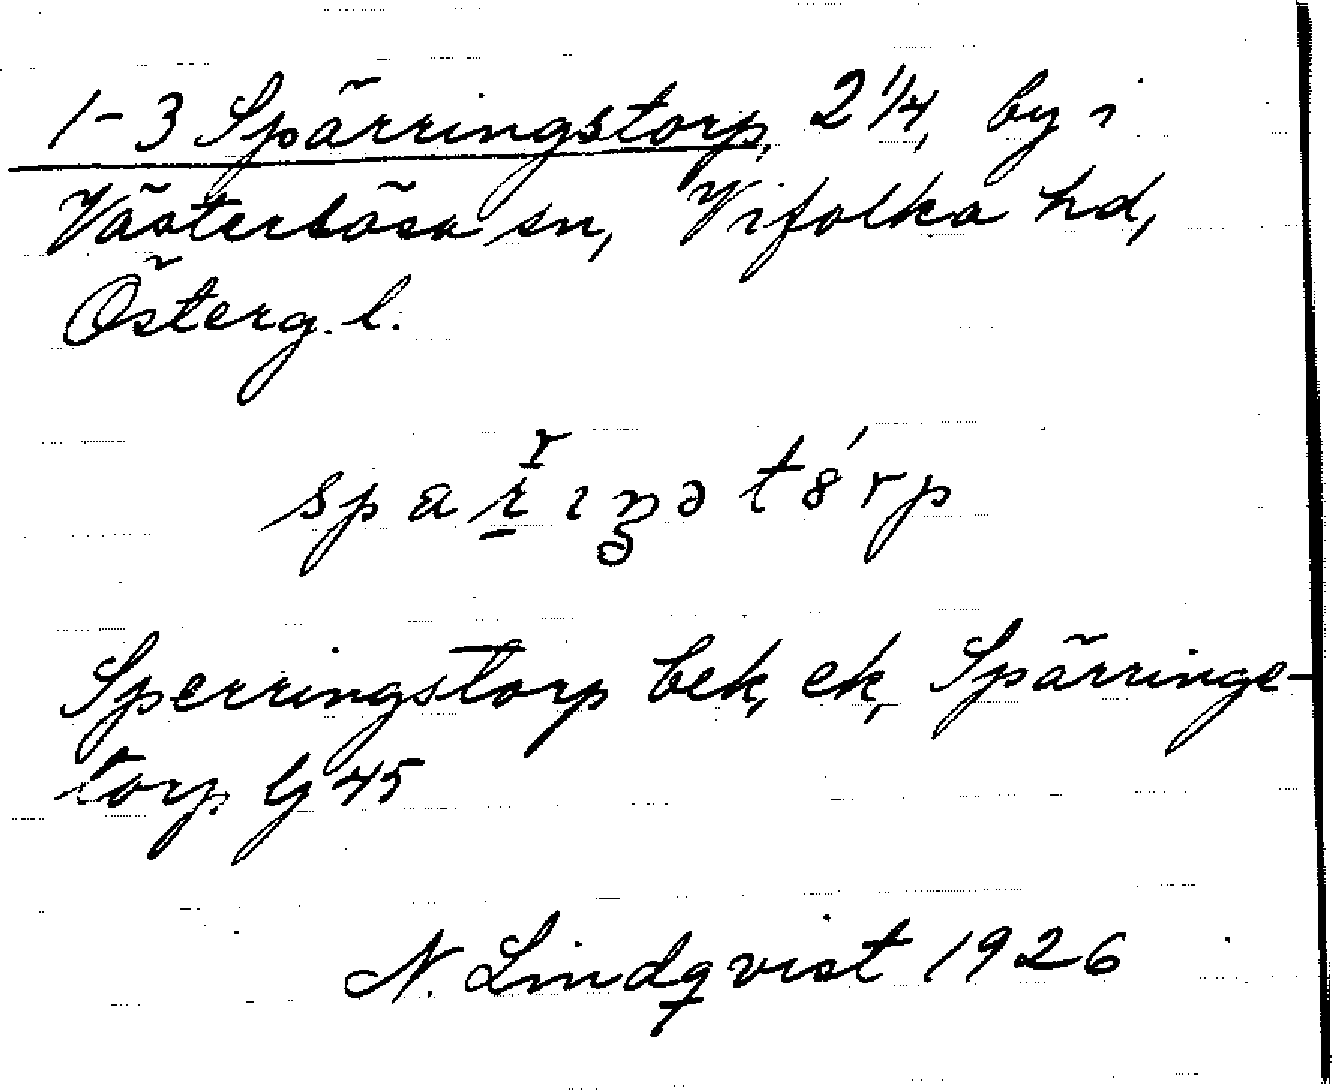 1-3 Spärringstorp, 2 1/4, by i
Västerlösa sn, Vifolka hd,
Österg. l.
Sperringstorp bek, ek, Spärringe-
torp G 45
N. Lindqvist 1926